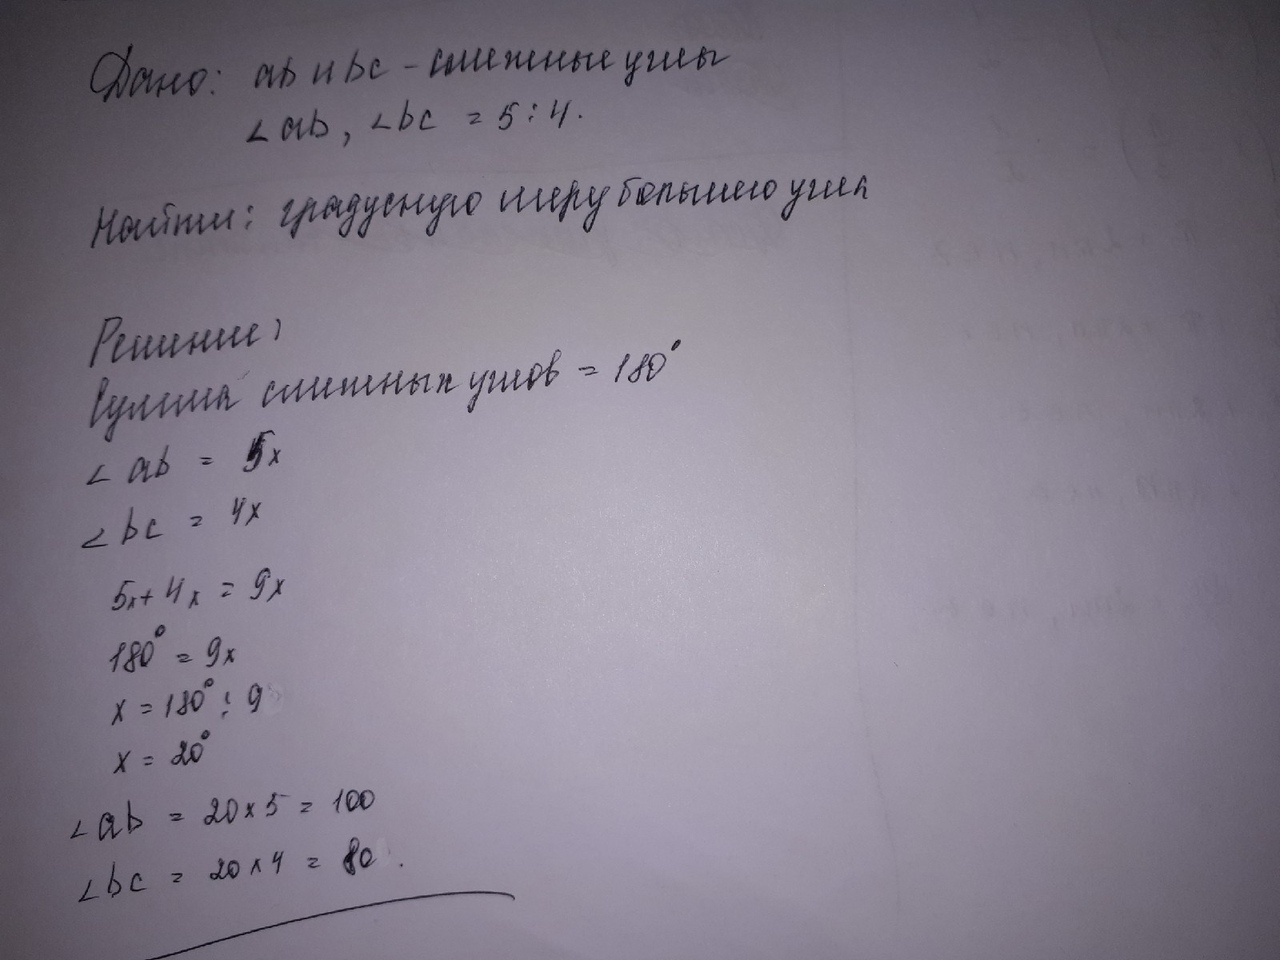 Дано: ab и bc - смежные углы
∠ab, ∠bc = 5:4.
Найти: градусную меру большего угла
Решение:
Сумма смежных углов = 180°
∠ab = 5x
∠bc = 4x
5x+4x = 9x
180° = 9x
x = 180° : 9
x = 20°
∠ab = 20×5 = 100
∠bc = 20×4 = 80.